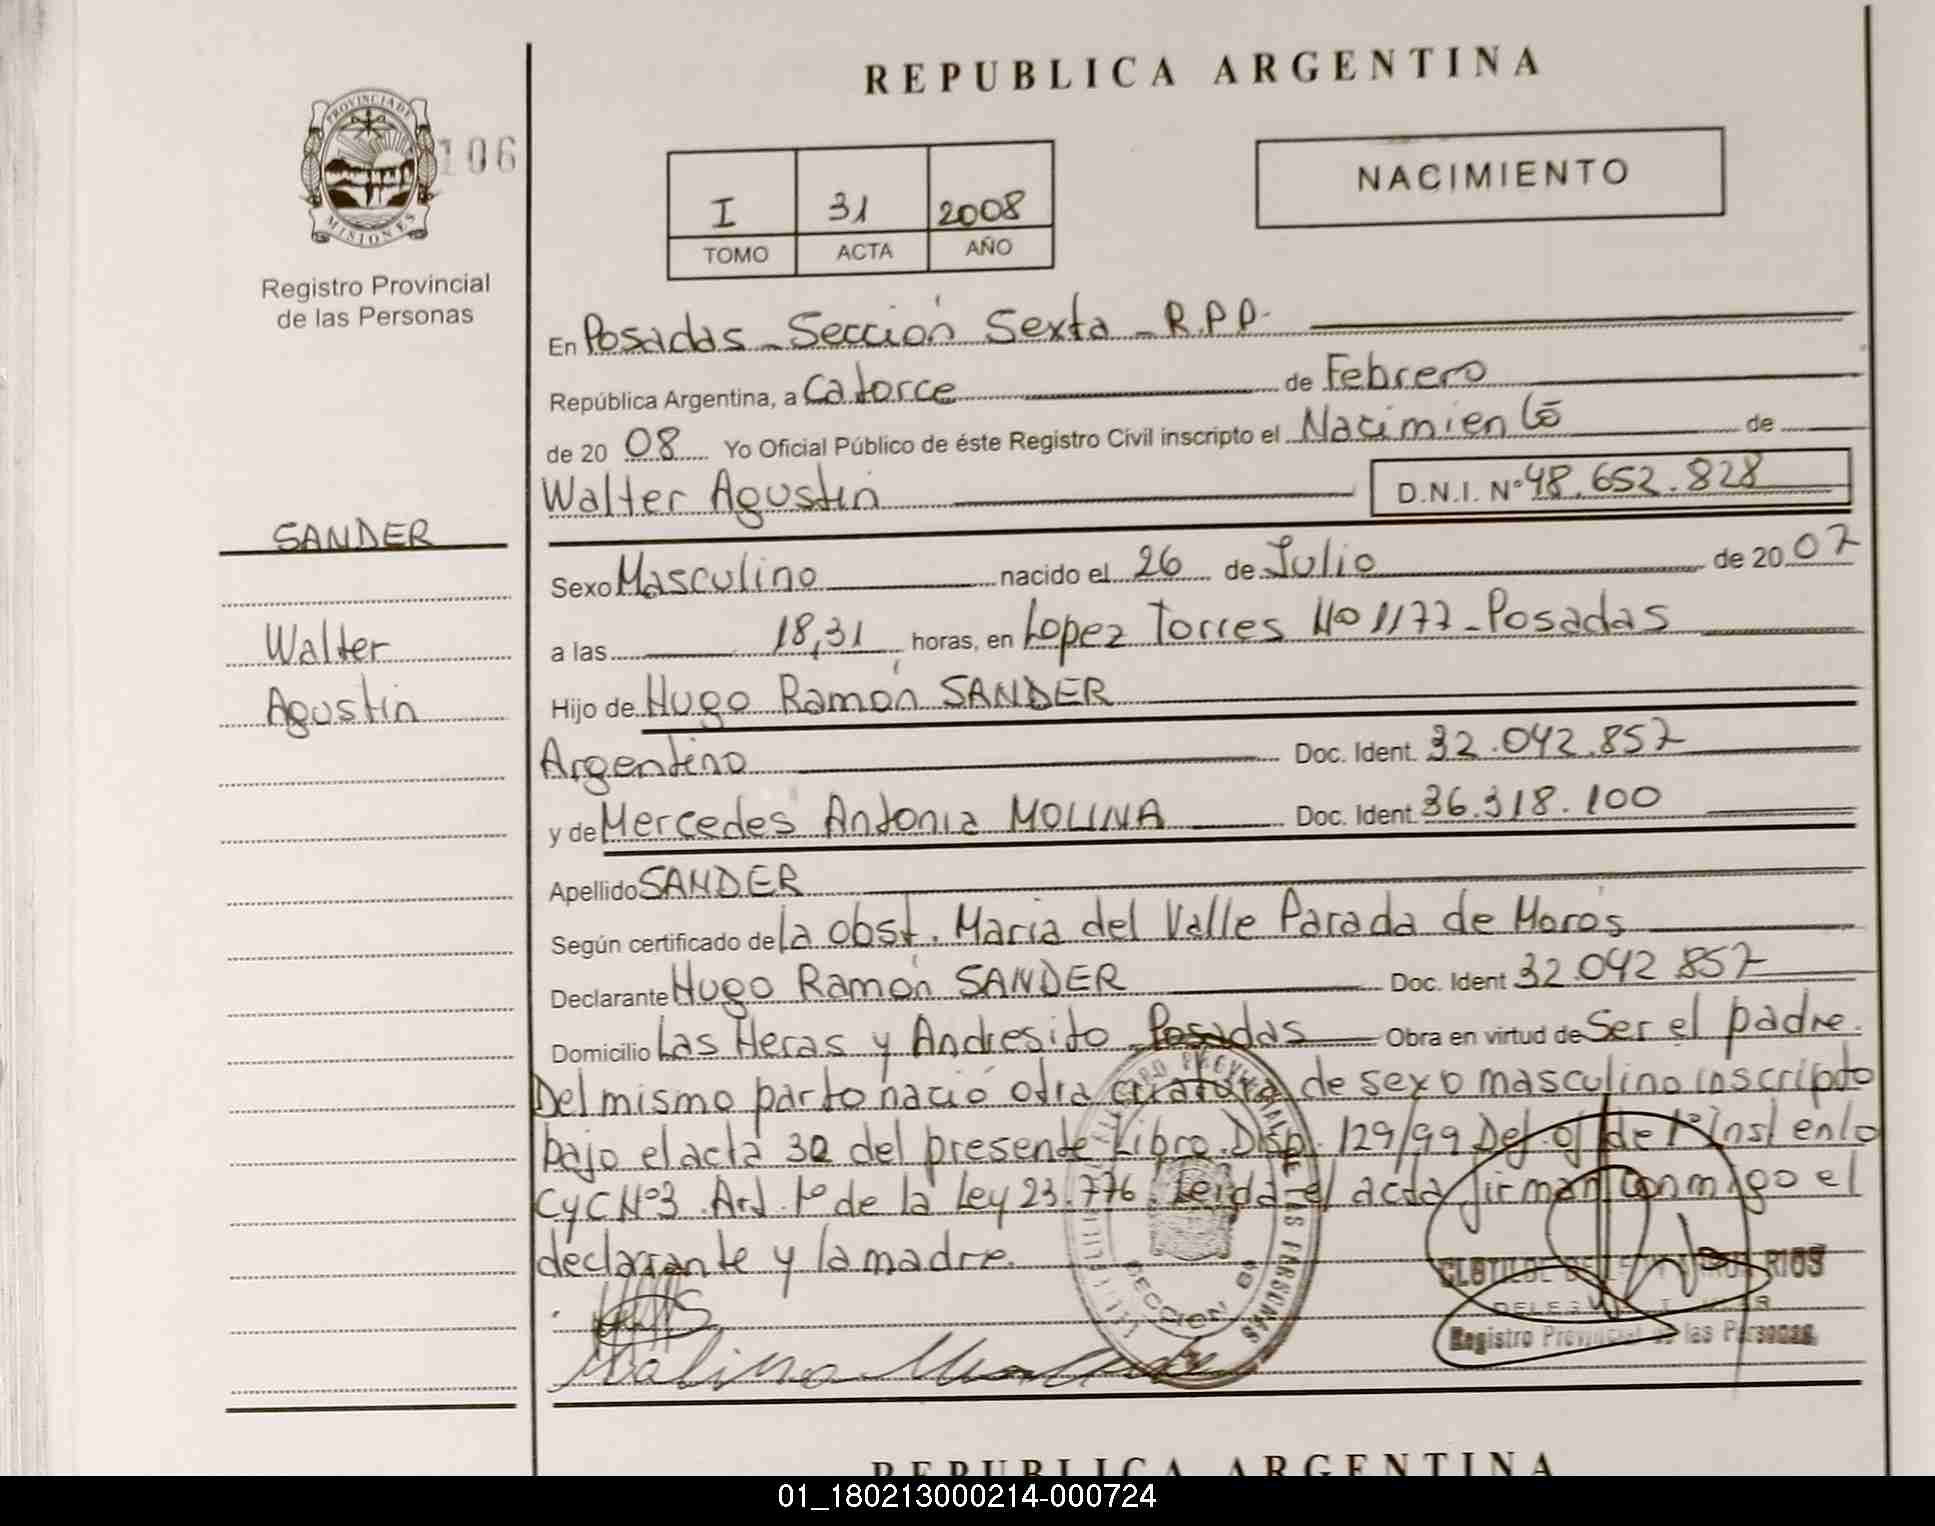 REPUBLICA ARGENTINA
PROVINCIA DE
MISIONES
106
Registro Provincial
de las Personas
I 31 2008
TOMO ACTA AÑO
NACIMIENTO
En Posadas - Sección Sexta - R.P.P.
República Argentina, a Catorce de Febrero
de 20 08 Yo Oficial Público de éste Registro Civil inscripto el Nacimiento de
Walter Agustín D.N.I. Nº 48.652.828
SANDER
Walter
Agustin
Sexo Masculino nacido el 26 de Julio de 20 07
a las 18,31 horas, en Lopez Torres Nº 1177 - Posadas
Hijo de Hugo Ramón SANDER
Argentino Doc. Ident. 32.042.857
y de Mercedes Antonia MOLINA Doc. Ident. 36.318.100
Apellido SANDER
Según certificado de la obst. Maria del Valle Parada de Moros
Declarante Hugo Ramón SANDER Doc. Ident 32.042.857
Domicilio Las Heras y Andresito Posadas Obra en virtud de Ser el padre.
Del mismo parto nació otra criatura de sexo masculino inscripto
bajo el acta 30 del presente Libro. Disp. 129/99 Def. of de 1º Inst en lo
CyC Nº 3. Art. 1º de la Ley 23.776. Leida el acta firman conmigo el
declarante y la madre.
Molina
SECCION 6º
RIOS
Registro Provincial de las Personas
REPUBLICA ARGENTINA
01_180213000214-000724